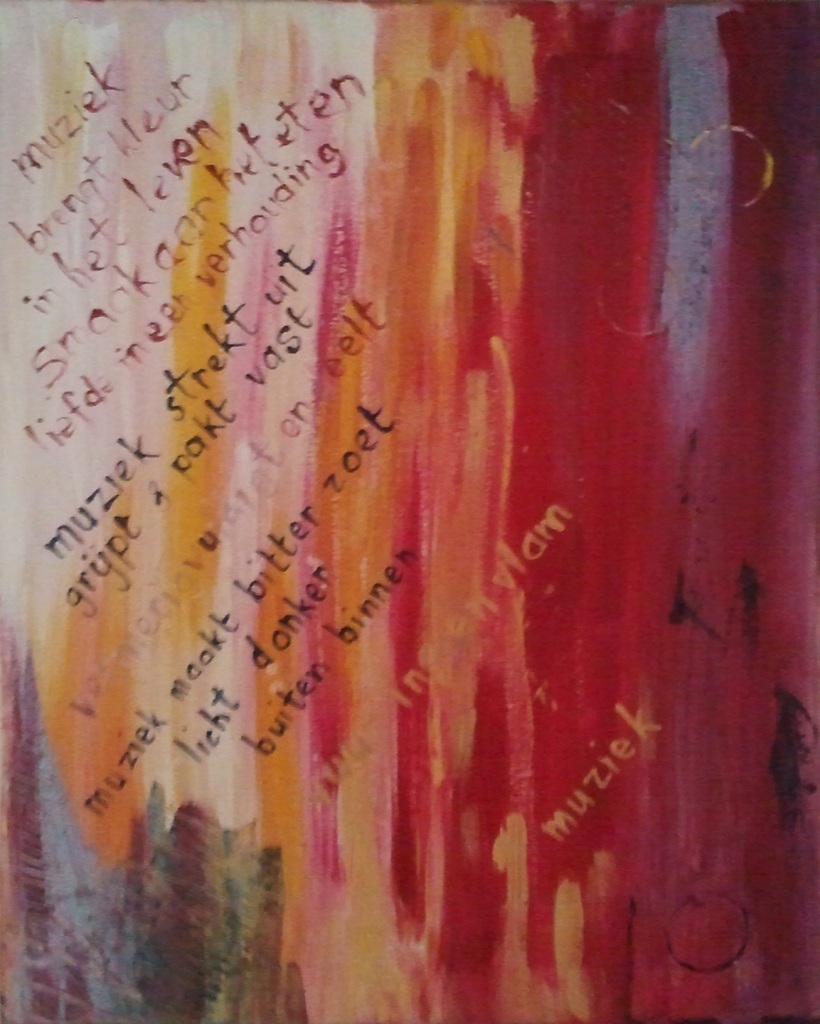 muziek
brengt kleur
in het leven
smaak aan het eten
liefde in een verhouding
muziek strekt uit
grijpt & pakt vast
en eelt
muziek maakt bitter zoet
licht donker
buiten binnen
in een vlam
muziek